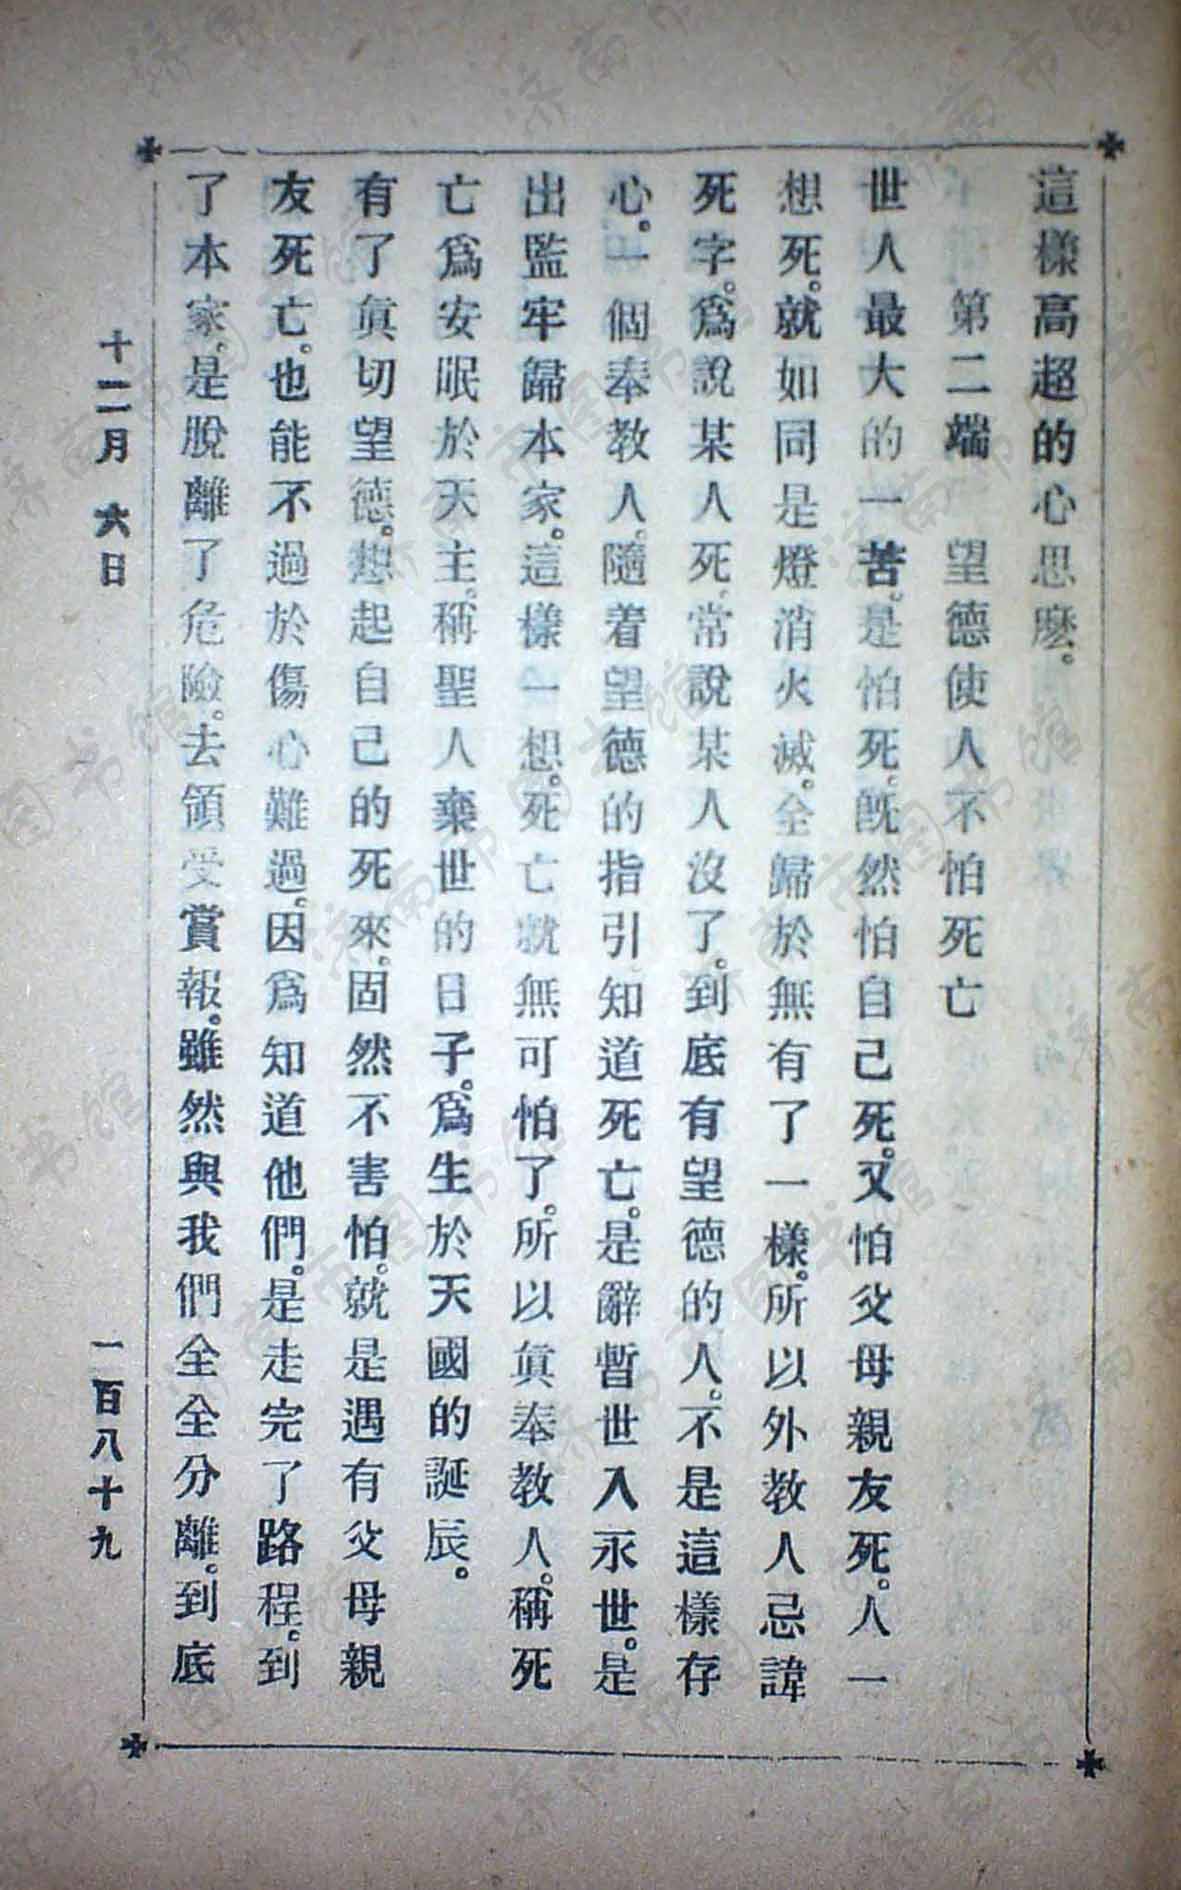 這樣高超的心思麽。
第二端　望德使人不怕死亡
世人最大的一苦。是怕死。旣然怕自己死。又怕父母親友死。人一
想死。就如同是燈消火滅。全歸於無有了一樣。所以外教人忌諱
死字。爲說某人死。常說某人沒了。到底有望德的人。不是這樣存
心。一個奉教人。隨着望德的指引知道死亡。是辭暫世入永世。是
出監牢歸本家。這樣一想。死亡就無可怕了。所以眞奉教人。稱死
亡爲安眠於天主。稱聖人棄世的日子。爲生於天國的誕辰。
有了眞切望德。想起自己的死來。固然不害怕。就是遇有父母親
友死亡。也能不過於傷心難過。因爲知道他們。是走完了路程。到
了本家。是脫離了危險。去領受賞報。雖然與我們全全分離。到底
十二月　六日　一百八十九